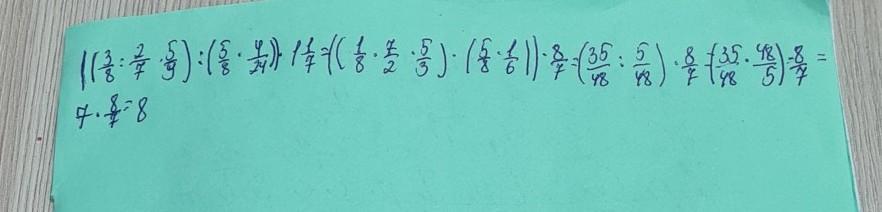 ((3/8 : 2/7 · 5/9) : (5/8 · 4/24)) · 1 1/7 = ((1/8 · 7/2 · 5/3) · (5/8 · 1/6)) · 8/7 = (35/48 : 5/48) · 8/7 = (35/48 · 48/5) · 8/7 =
7 · 8/7 = 8